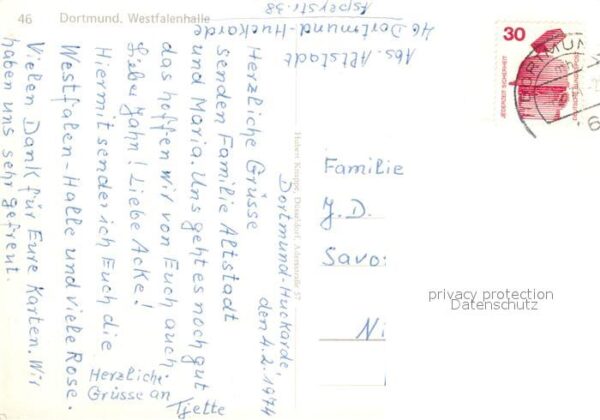 46 Dortmund, Westfalenhalle
Abs. Altstadt
46 Dortmund-Huckarde
Asperstr. 38
Dortmund-Huckarde,
den 4.2.1974
Herzliche Grüsse
senden Familie Altstadt
und Maria. Uns geht es noch gut
das hoffen wir von Euch auch.
Liebe Jahn! Liebe Acke!
Hiermit sende ich Euch die
Westfalen-Halle und viele Rose.
Vielen Dank für Eure Karten. Wir
haben uns sehr gefreut.
Herzliche
Grüsse an
Tjette
Hubert Knuppe, Düsseldorf, Adersstraße 57
30
JEDERZEIT SICHERHEIT
DEUTSCHE BUNDESPOST
DORTMUND
Familie
J. D.
Savo
Ni
privacy protection
Datenschutz